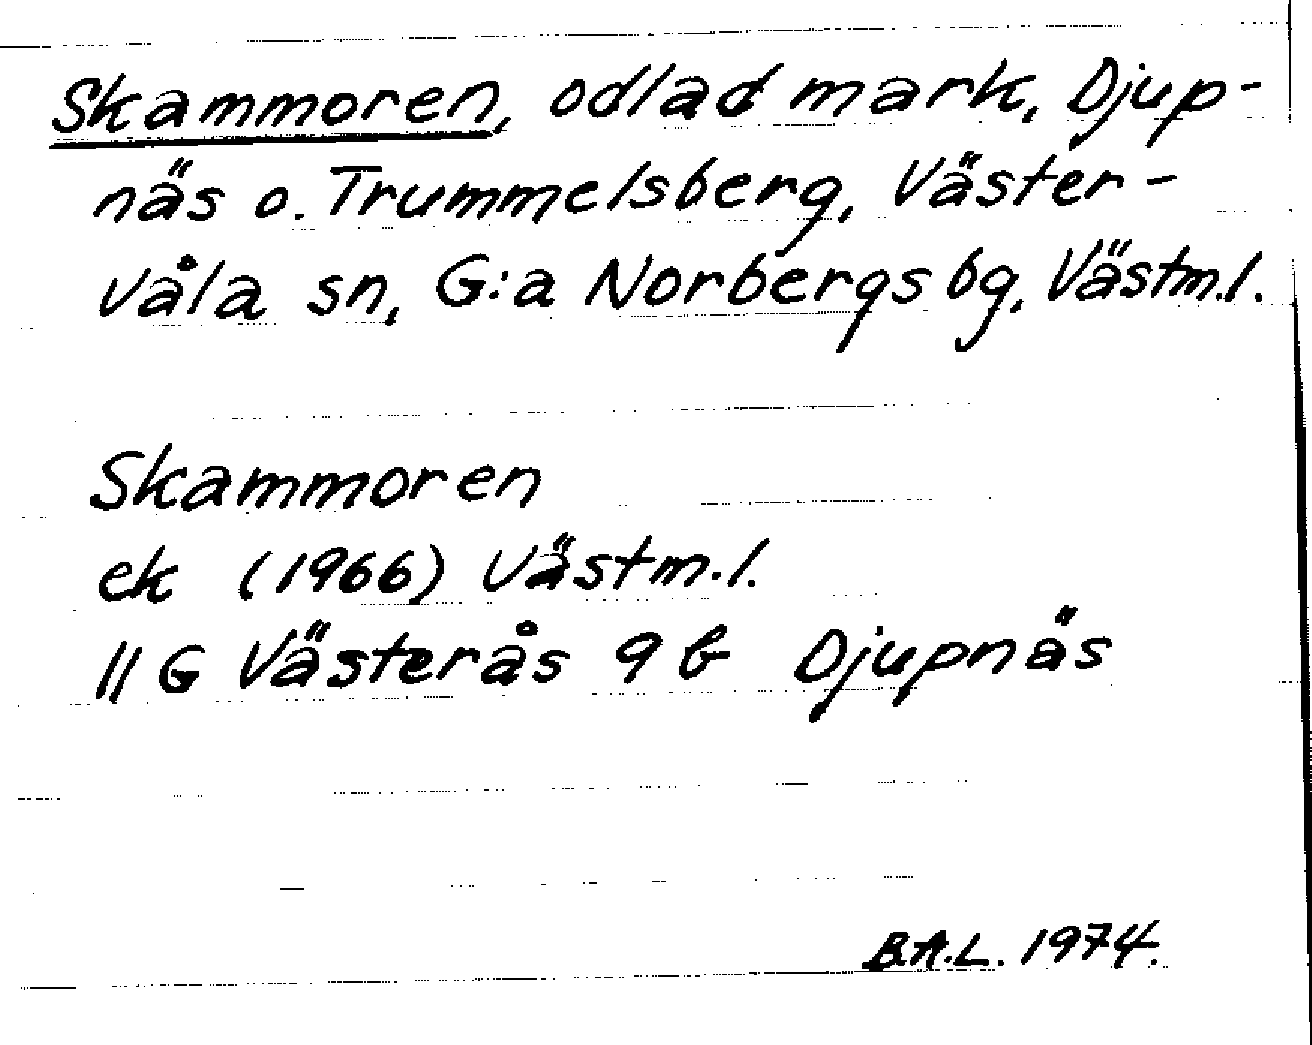 Skammoren, odlad mark, Djup-
näs o. Trummelsberg, Väster-
våla sn, G:a Norbergs bg, Västm.l.
Skammoren
ek (1966) Västm.l.
11 G Västerås 9 b Djupnäs
B.A.L. 1974.